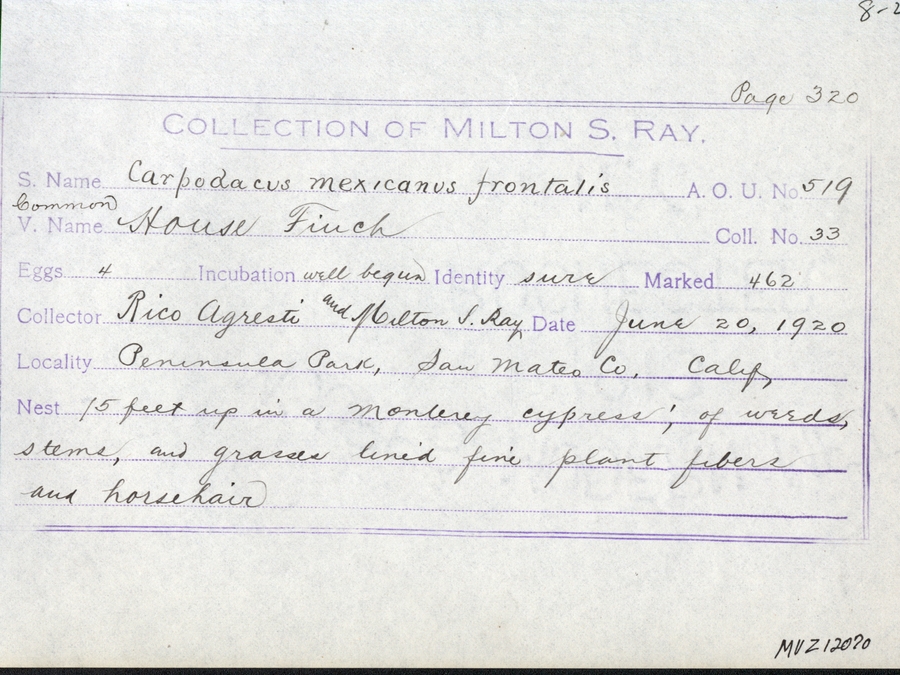 Page 320
COLLECTION OF MILTON S. RAY.
S. Name Carpodacus mexicanus frontalis A. O. U. No 519
Common
V. Name House Finch Coll. No. 33
Eggs 4 Incubation well begun Identity sure Marked 462
Collector Rico Agresti and Milton S. Ray Date June 20, 1920
Locality Peninsula Park, San Mateo Co. Calif,
Nest 15 feet up in a Monterey cypress; of weeds,
stems, and grasses lined fine plant fibers
and horsehair
MVZ12070